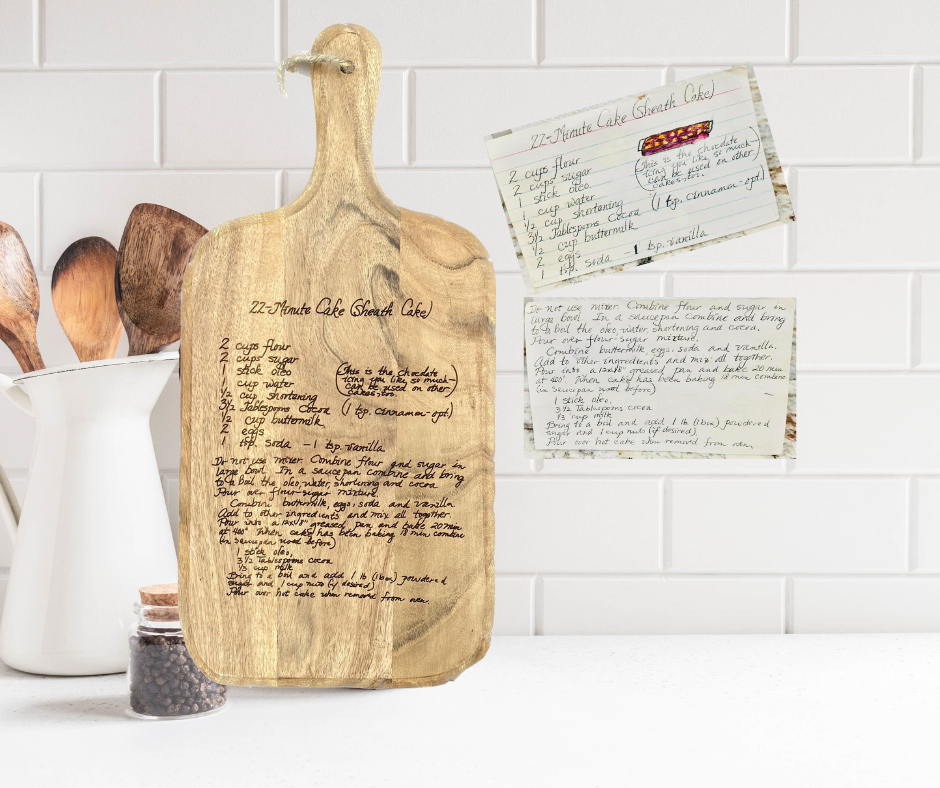 22-Minute Cake (Sheath Cake)
2 cups flour
2 cups sugar
1 stick oleo
1 cup water
1/2 cup shortening
3 1/2 Tablespoons Cocoa
1/2 cup buttermilk
2 eggs
1 tsp. soda - 1 tsp. vanilla
(This is the chocolate
icing you like so much-
can be used on other
cakes-too.)
(1 tsp. cinnamon-opt)
Do not use mixer. Combine flour and sugar in
large bowl. In a saucepan combine and bring
to a boil the oleo, water, shortening and cocoa
Pour over flour-sugar mixture.
Combine buttermilk, eggs, soda and vanilla
Add to other ingredients and mix all together.
Pour into a 12x18" greased pan and bake 20 min
at 400° When cake has been baking 18 min combine
(in saucepan used before)
1 stick oleo,
3 1/2 Tablespoons cocoa
1/3 cup milk
Bring to a boil and add 1 lb (1 box) powdered
sugar and 1 cup nuts (if desired)
Pour over hot cake when removed from oven.
22-Minute Cake (Sheath Cake)
2 cups flour
2 cups sugar
1 stick oleo
1 cup water
1/2 cup shortening
3 1/2 Tablespoons Cocoa
1/2 cup buttermilk
2 eggs
1 tsp. soda - 1 tsp. vanilla
(This is the chocolate
icing you like so much-
can be used on other
cakes-too.)
(1 tsp. cinnamon-opt)
Do not use mixer. Combine flour and sugar in
large bowl. In a saucepan combine and bring
to a boil the oleo, water, shortening and cocoa.
Pour over flour-sugar mixture.
Combine buttermilk, eggs, soda and vanilla.
Add to other ingredients and mix all together.
Pour into a 12x18" greased pan and bake 20 min
at 400°. When cake has been baking 18 min combine
(in saucepan used before)
1 stick oleo,
3 1/2 Tablespoons cocoa
1/3 cup milk
Bring to a boil and add 1 lb (1 box) powdered
sugar and 1 cup nuts (if desired)
Pour over hot cake when removed from oven.